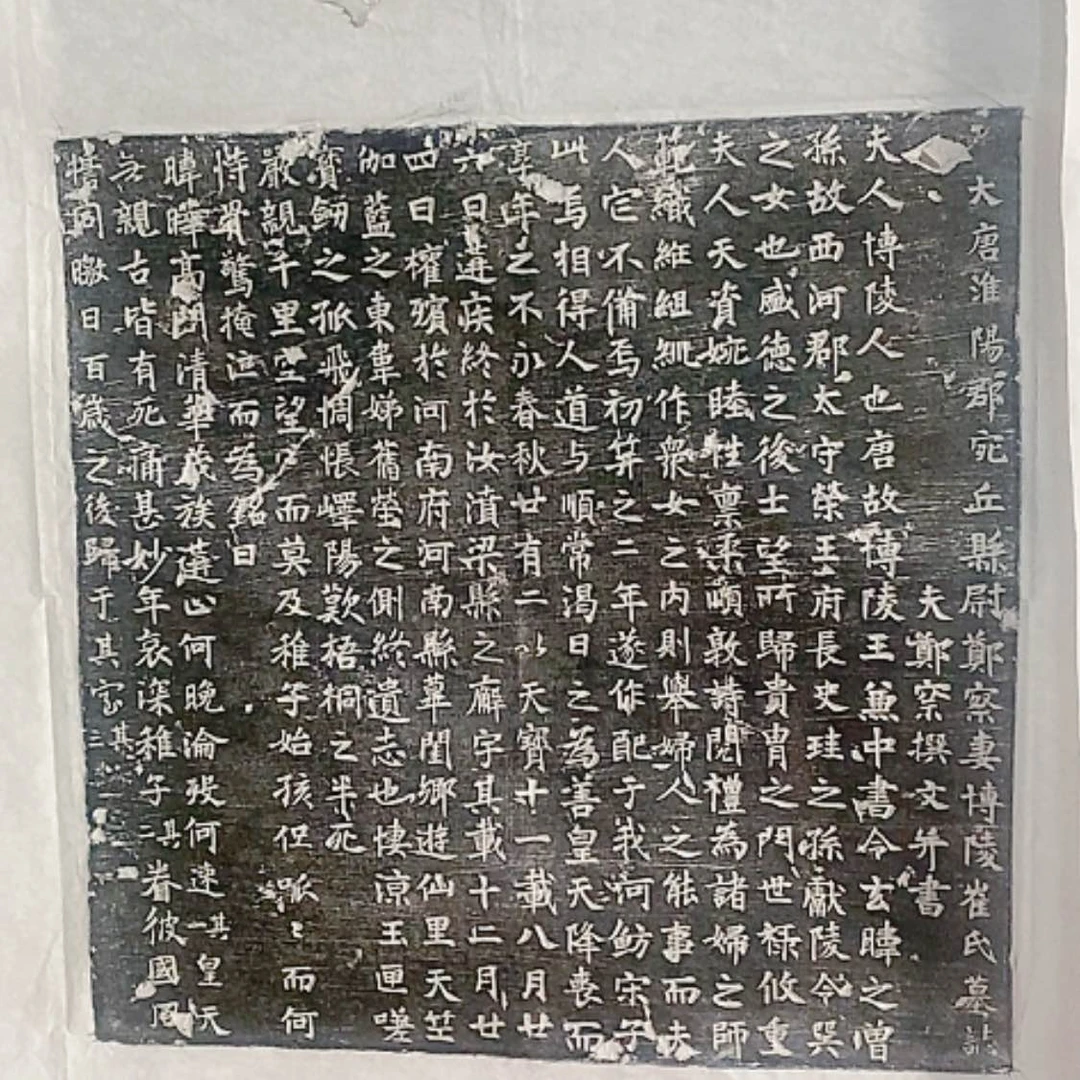 大唐淮陽郡宛丘縣尉鄭寀妻博陵崔氏墓誌
夫鄭寀撰文并書
夫人博陵人也唐故博陵王兼中書令玄暐之曾
孫故西河郡太守榮王府長史珪之孫獻陵令巽
之女也盛德之後士望所歸貴胄之門世祿攸重
夫人天資婉睦性稟柔順敦詩閱禮為諸婦之師
範織維組紃作眾女之內則舉婦人之能事而夫
人它不備焉初笄之二年遂作配于我河魴宋子
此焉相得人道与順常渴日之為善皇天降喪而
享年之不永春秋廿有二以天寶十一載八月廿
六日遘疾終於汝濆梁縣之廨宇其載十二月廿
四日權殯於河南府河南縣葦閏鄉遊仙里天竺
伽藍之東韋娣舊塋之側終遺志也悽涼玉匣嗟
寶劒之孤飛惆悵嶧陽歎梧桐之半死
嚴親千里空望而莫及稚子始孩但呱々而何
恃骨驚掩泣而為銘曰
暐曄高門清華茂族蓮止何晚淪歿何速其一皇天
無親古皆有死痛甚妙年哀深稚子其二眷彼國風
惜同皦日百歲之後歸于其室其三